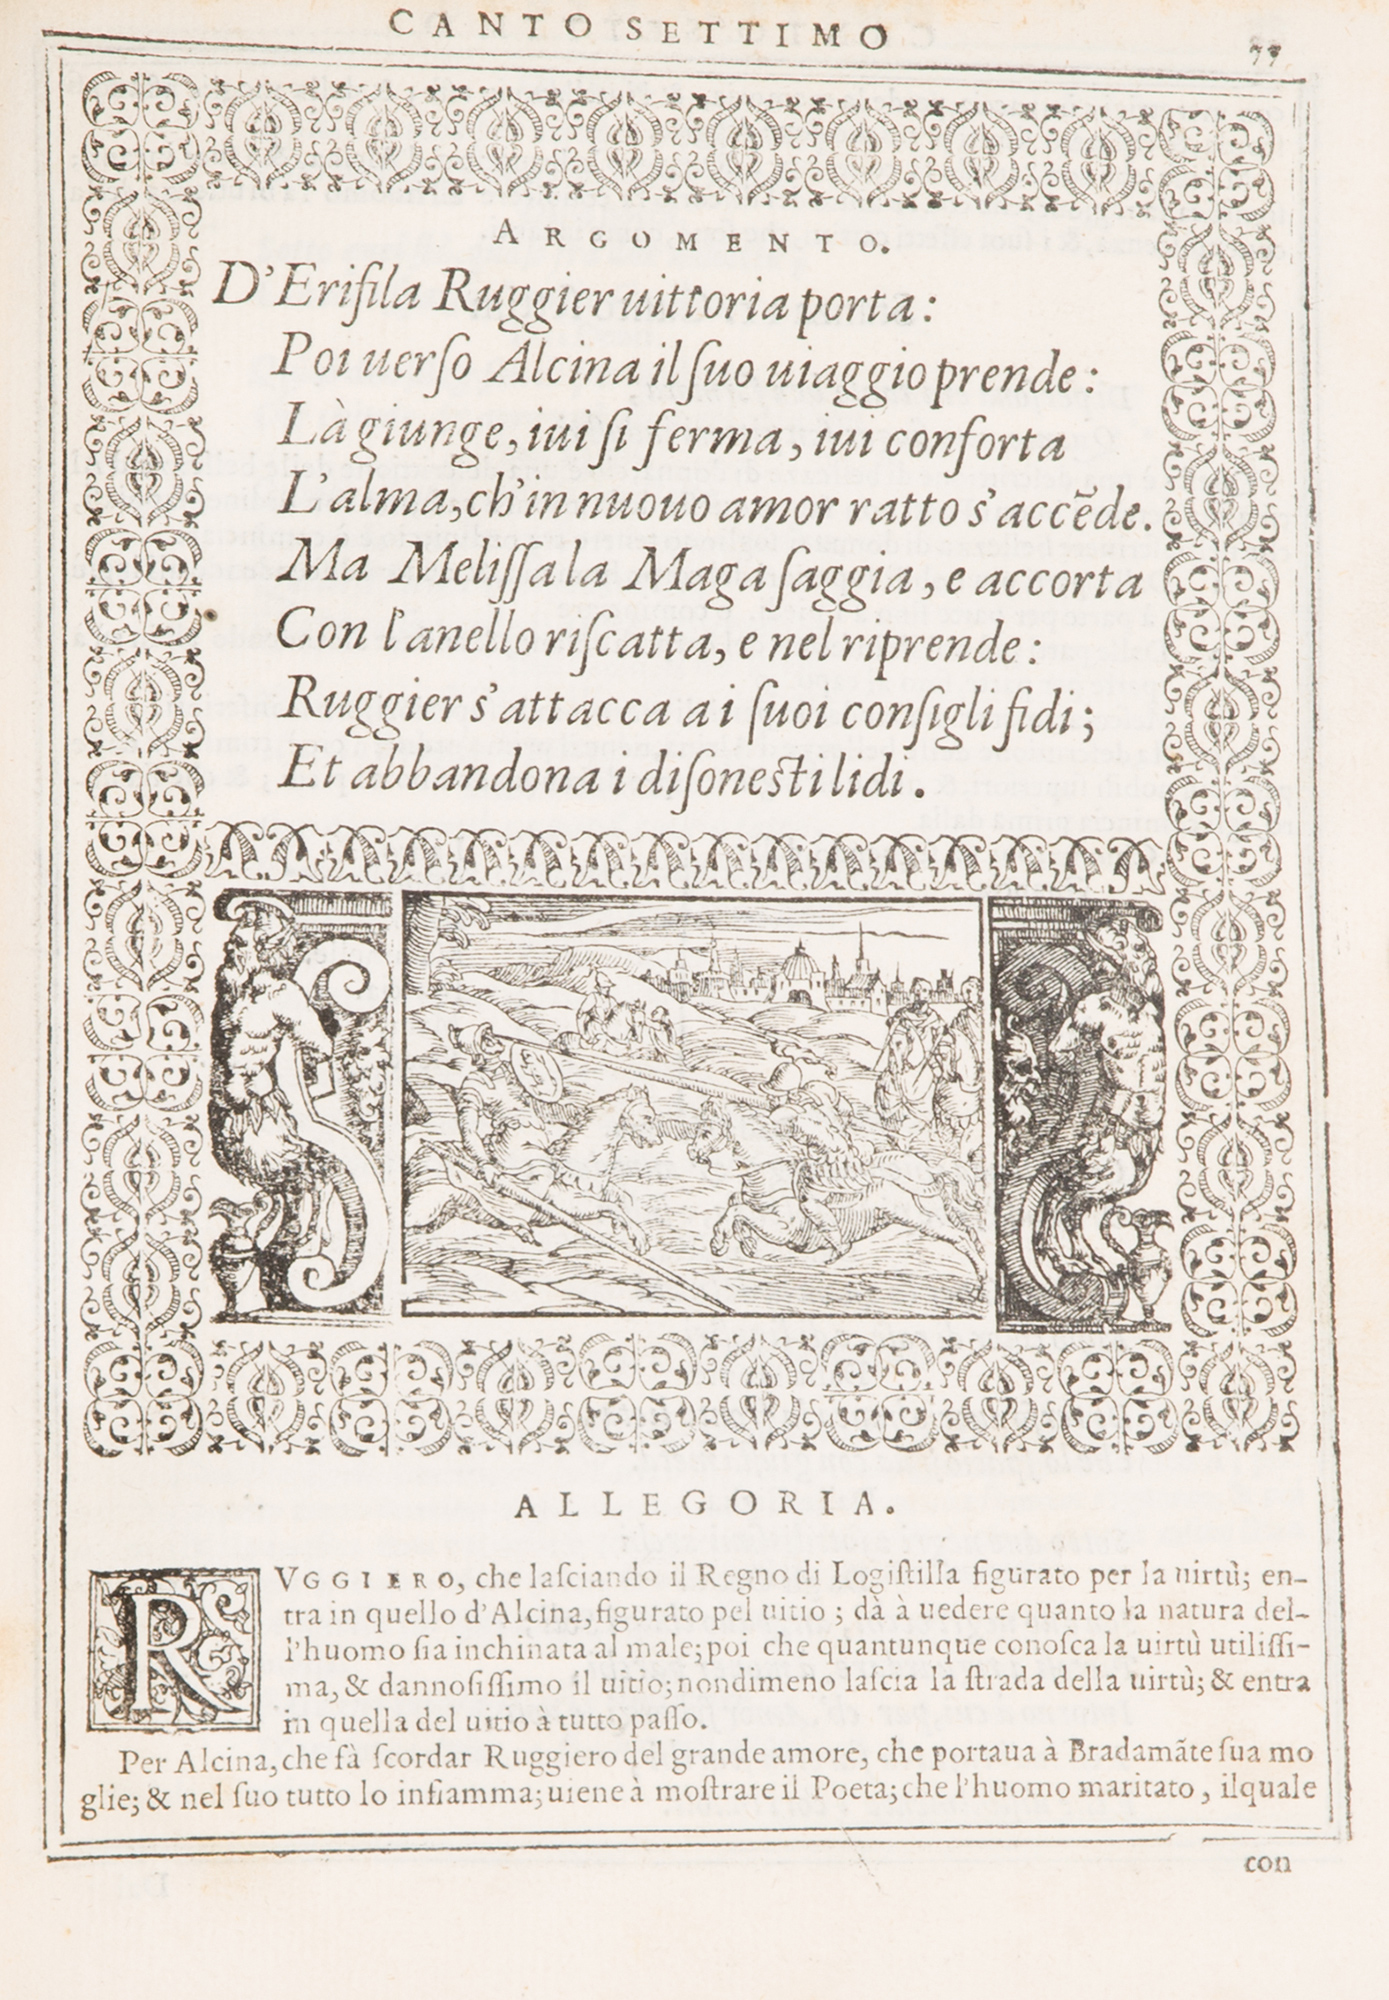 CANTO SETTIMO
77
ARGOMENTO.
D'Eriſila Ruggier uittoria porta:
Poi uerſo Alcina il ſuo uiaggio prende:
Là giunge, iui ſi ferma, iui conforta
L'alma, ch'in nuouo amor ratto s'accẽde.
Ma Meliſſa la Maga ſaggia, e accorta
Con l'anello riſcatta, e nel riprende:
Ruggier s'attacca a i ſuoi conſigli fidi;
Et abbandona i diſoneſti lidi.
ALLEGORIA.
RVGGIERO, che laſciando il Regno di Logiſtilla figurato per la uirtù; en-
tra in quello d'Alcina, figurato pel uitio; dà à uedere quanto la natura del-
l'huomo ſia inchinata al male; poi che quantunque conoſca la uirtù utiliſſi-
ma, & dannoſiſſimo il uitio; nondimeno laſcia la ſtrada della uirtù; & entra
in quella del uitio à tutto paſſo.
Per Alcina, che fà ſcordar Ruggiero del grande amore, che portaua à Bradamãte ſua mo
glie; & nel ſuo tutto lo infiamma; uiene à moſtrare il Poeta; che l'huomo maritato, ilquale
con